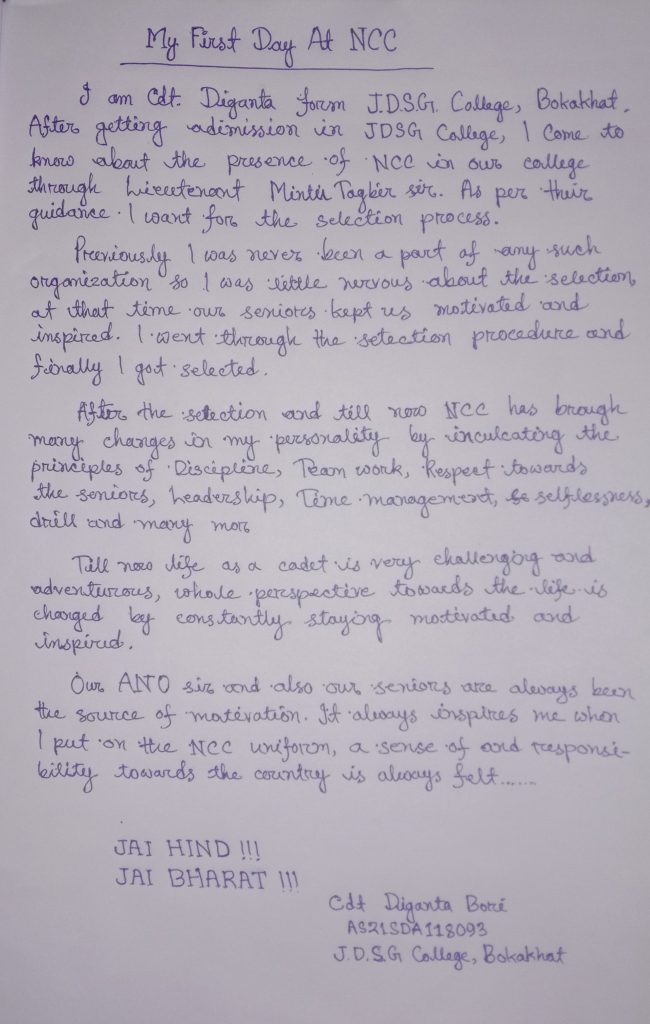 My First Day At NCC
I am Cdt. Diganta form J.D.S.G. College, Bokakhat.
After getting adimission in JDSG College, I Come to
know about the presence of NCC in our college
through Lieeutenant Mintu Tagbir sir. As per their
guidance I want for the selection process.
Previously I was never been a part of any such
organization so I was little nervous about the selection,
at that time our seniors kept us motivated and
inspired. I went through the setection procedure and
finally I got selected.
After the setection and till now NCC has brough
many changes in my personality by inculcating the
principles of Discipline, Team work, Respect towards
the seniors, Leadership, Time management, selflessness,
drill and many mor
Till now life as a cadet is very challenging and
adventurous, whole perspective towards the life is
changed by constantly staying motivated and
inspired.
Our ANO sir and also our seniors are always been
the source of motivation. It always inspires me when
I put on the NCC uniform, a sense of and responsi-
bility towards the country is always felt......
JAI HIND !!!
JAI BHARAT !!!
Cdt Diganta Bori
AS21SDA118093
J.D.S.G College, Bokakhat